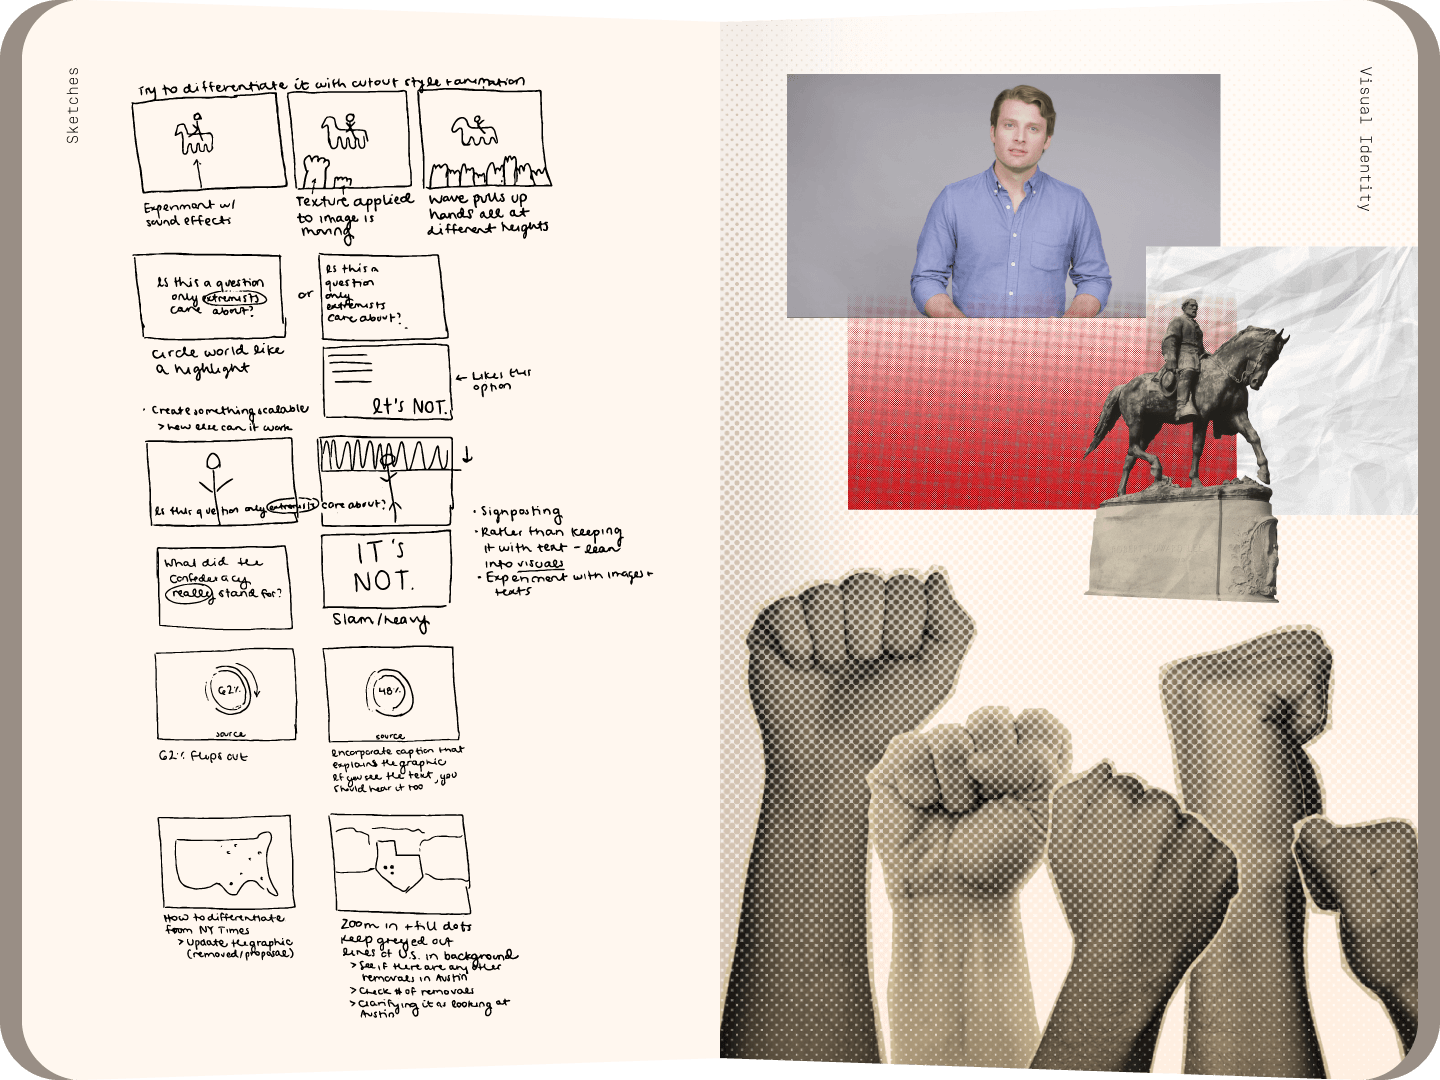 Sketches
Try to differentiate it with cutout style + animation
Experiment w/
sound effects
Texture applied
to image is
moving
Wave pulls up
hands all at
different heights
Is this a question
only extremists
care about?
or
Is this a
question
only
extremists
care about?
circle world like
a highlight
It's NOT.
← Likes this
option
· Create something scalable
> how else can it work
Is this question only extremists care about?
· Signposting
· Rather than keeping
it with text - lean
into visuals
· Experiment with images +
texts
What did the
Confederacy
really stand for?
IT'S
NOT.
Slam/heavy
62%
source
62% flips out
48%
source
Incorporate caption that
explains the graphic
If you see the text, you
should hear it too
How to differentiate
from NY Times
> Update the graphic
(removed/proposal)
Zoom in + fill dots
Keep greyed out
lines of U.S. in background
> See if there are any other
removals in Austin
> Check # of removals
> Clarifying it as looking at
Austin
Visual Identity